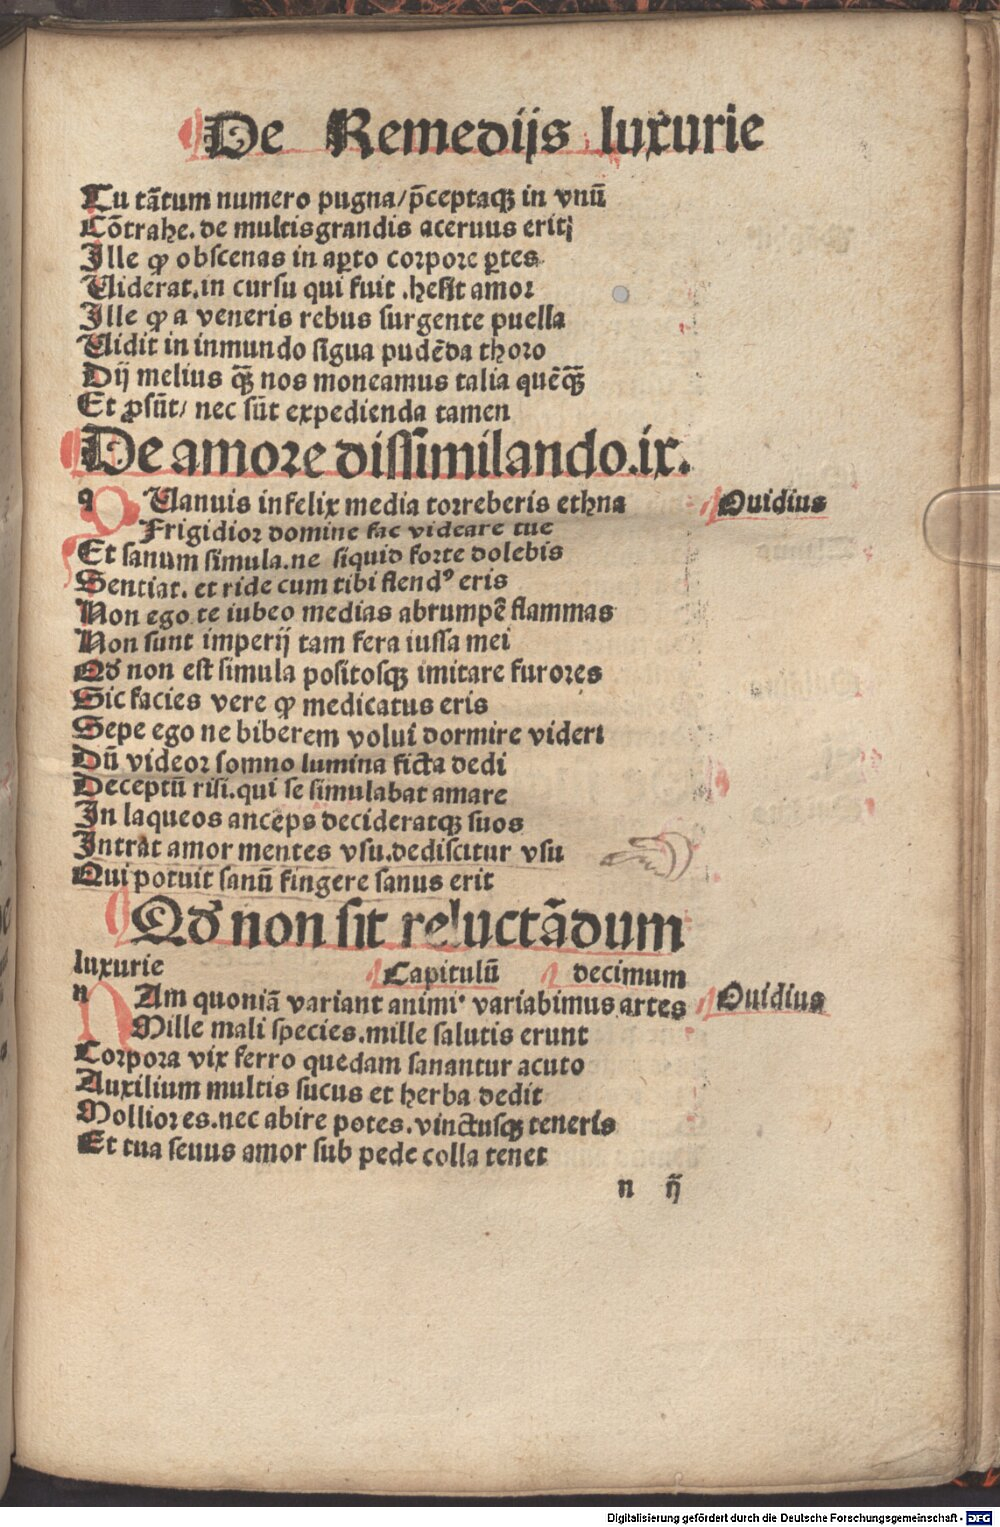 De Remediis luxurie
Tu tãtum numero pugna/p̃ceptaqꝫ in vnũ
Cõtrahe. de multis grandis aceruus erit;
Ille ꝙ obscenas in aꝑto corpore ꝑtes
Uiderat. in cursu qui fuit . hesit amor
Ille ꝙ a veneris rebus surgente puella
Uidit in inmundo signa pudẽda thoro
Dij melius qꝫ̃ nos moneamus talia quẽqꝫ̃
Et ꝓsũt/ nec sũt expedienda tamen
De amore dissimilando.ix.
q Uanuis infelix media torreberis ethna
Ouidius
Frigidior domine fac videare tue
Et sanum simula.ne siquid forte dolebis
Sentiat. et ride cum tibi flendꝰ eris
Non ego te iubeo medias abrumpẽ flammas
Non sunt imperij tam fera iussa mei
Qđ non est simula positosqꝫ imitare furores
Sic facies vere ꝙ medicatus eris
Sepe ego ne biberem volui dormire videri
Dũ videor somno lumina ficta dedi
Deceptũ risi.qui se simulabat amare
In laqueos anceps decideratqꝫ suos
Intrat amor mentes vsu.dediscitur vsu
Qui potuit sanũ fingere sanus erit
Qđ non sit reluctãdum
luxurie Capitulũ decimum
n Am quoniã variant animi· variabimus artes
Ouidius
Mille mali species.mille salutis erunt
Corpora vix ferro quedam sanantur acuto
Auxilium multis sucus et herba dedit
Mollior es.nec abire potes.vinctusqꝫ teneris
Et tua seuus amor sub pede colla tenet
n ij
Digitalisierung gefördert durch die Deutsche Forschungsgemeinschaft - DFG